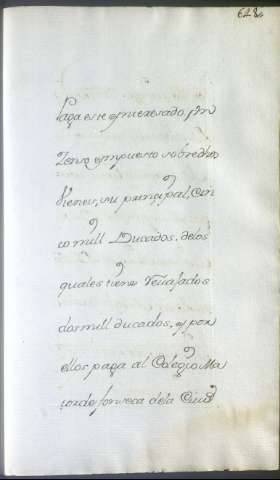 628
Paga este ynteresado, Un
Zenso ympuesto sobre dhos
Vienes, su prinzipal, Cin
co mill Ducados, delos
quales tiene Revajados
dos mill ducados, y por
ellos paga al Colegio Ma
ior de fonseca de la Ciud